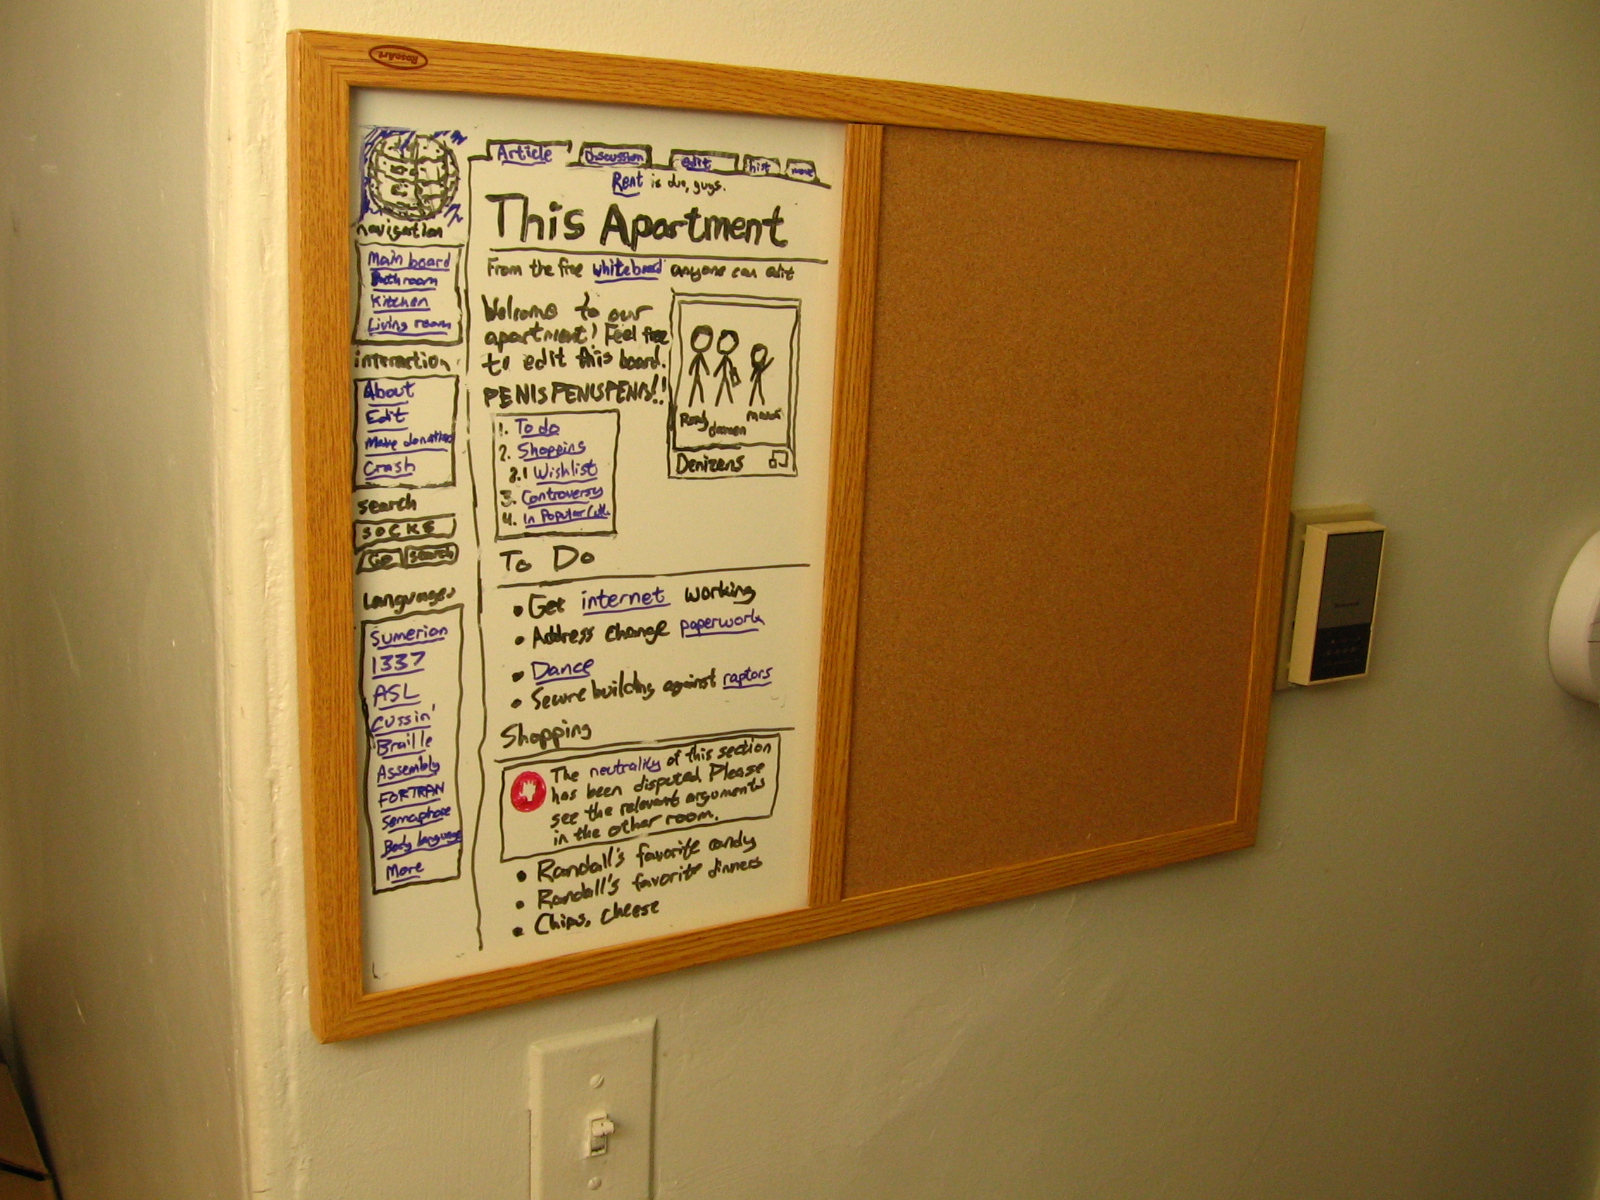 RoseArt
Article
Discussion
edit
hist
move
Rent is due, guys.
This Apartment
From the free whiteboard anyone can edit
navigation
Main board
Bathroom
Kitchen
Living room
interaction
About
Edit
Make donation
Crash
search
SOCKS
Go
search
Languages
Sumerian
1337
ASL
Cussin'
Braille
Assembly
FORTRAN
Semaphore
Body language
More
Welcome to our
apartment! Feel free
to edit this board.
PENISPENISPENIS!!
Denizens
1. To do
2. Shopping
2.1 Wishlist
3. Controversy
4. In Popular Cult.
To Do
• Get internet working
• Address change paperwork
• Dance
• Secure building against raptors
Shopping
The neutrality of this section
has been disputed. Please
see the relevant arguments
in the other room.
• Randall's favorite candy
• Randall's favorite dinners
• Chips, cheese